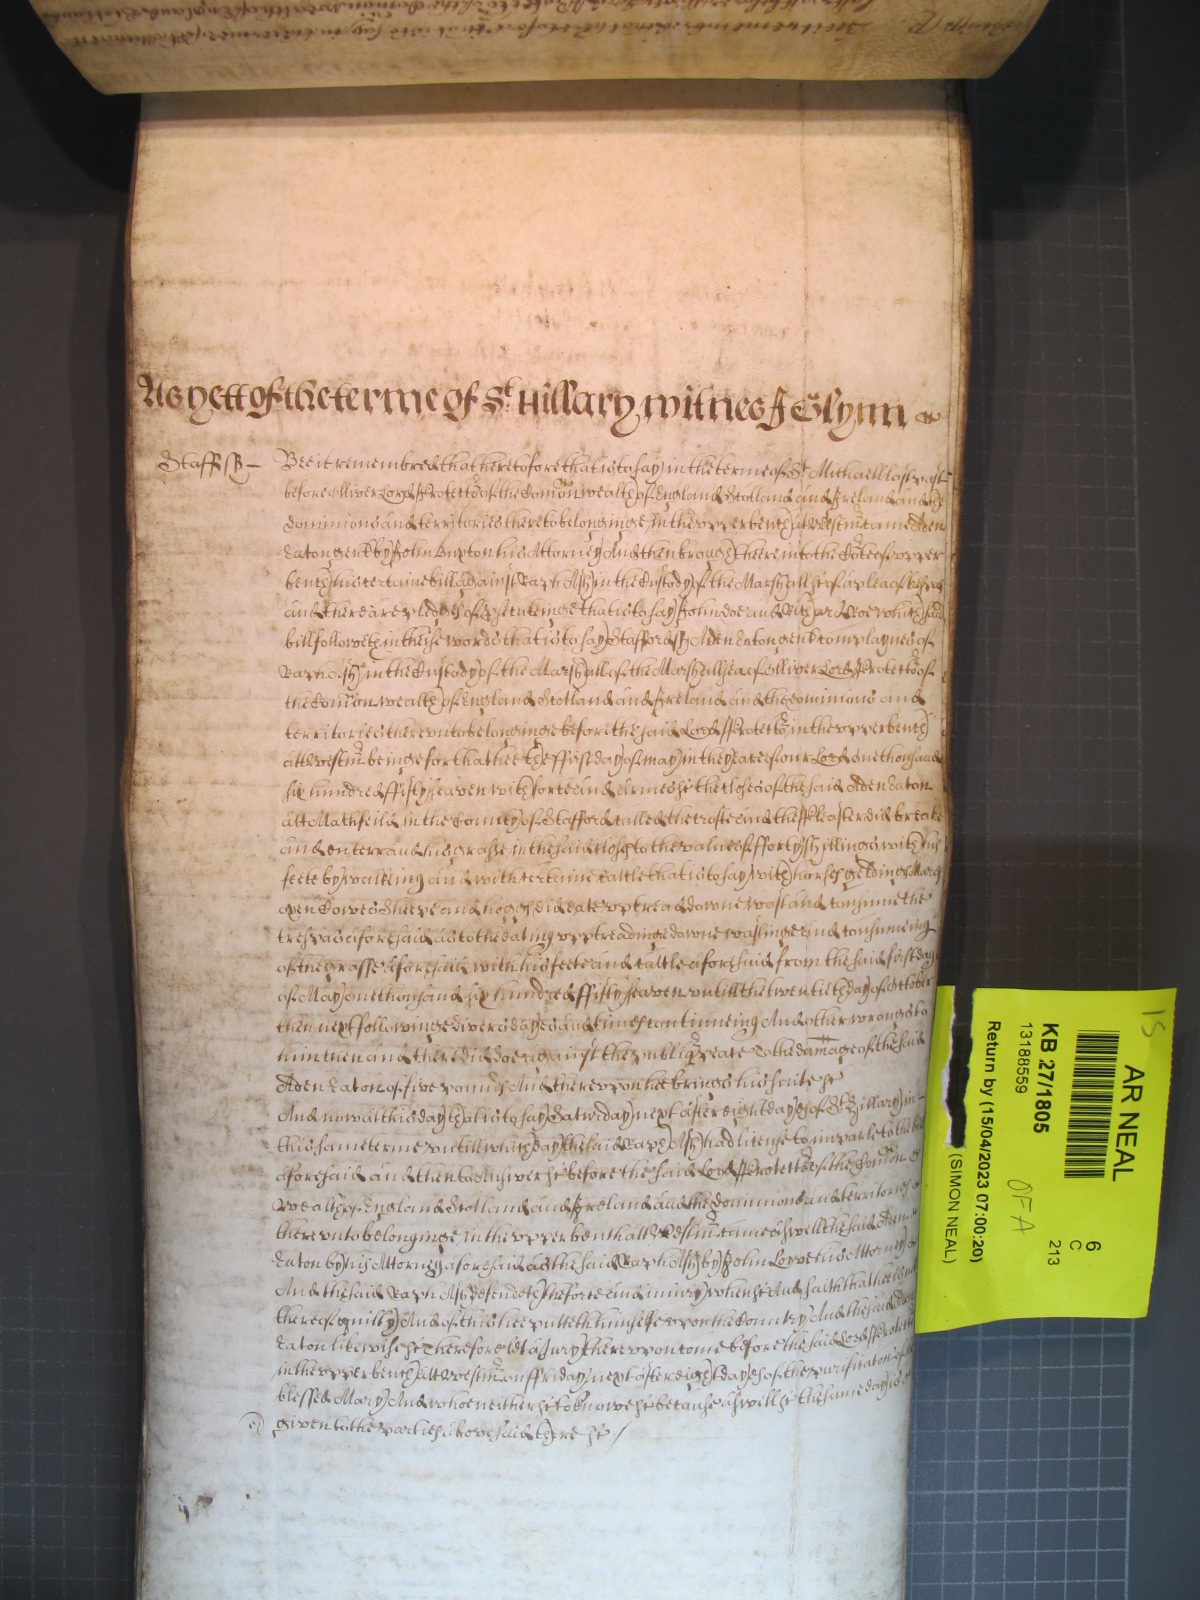 As yett of the terme of St. Hillary witnes J Glynn
Staff ss Bee it remembred that heretofore that is to say in the terme of St Michaell last past
before Oliver Lord Protector of the Comon wealth of England Scotland and Ireland and the
dominions and territories thereto belonginge in the upper bench att Westmr came Aden
Eaton gent by John Lupton his Attorney And then brought here into the Cote of upper
bench his certaine bill against Raph Ash in the Custody of the Marshall &c of a plea of trespas
and there are pledges of prosecuteinge that is to say John doe and Richard Roe which said
bill followeth in theise words that is to say Stafford ss Aden Eaton gent complaynes of
Raph Ash in the Custody of the Marshall of the Marshallsea of Oliver Lord Protector of
the Comon wealth of England Scotland and Ireland and the dominions and
territories thereunto belonginge before the said Lord Protector in the upper bench
att Westmr beinge for that hee the ffirst day of may in the yeare of our Lord one thousand
six hundred ffifty seaven with force and armes &c the closes of the said Aden Eaton
att Mathfeild in the County of Stafford called the and the did breake
and enter and his grasse in the said closes to the value of fforty shillings with his
feete by walking and with certaine cattle that is to say with horses geldings Mares
oxen Cowes Sheepe and hoggs did eate upp tread downe wast and consume the
trespas aforesaid as to the eating upp treadinge downe wastinge and consumeing
of the grasse aforesaid with his feete and cattle aforesaid from the said first day
of May one thousand six hundred ffifty seaven untill the twentieth day of October
then next followinge divers dayes and times continueing And other wrongs to
him then and there did doe against the publiq peace To the damage of the said
Aden Eaton of five pounds And thereupon hee brings his suite &c
And now att this day that is to say Satturday next after eight dayes of St Hillary in
this same terme untill which day the said Raph Ash had license to imparle to the bill
aforesaid and then to Answer &c before the said Lord Protector of the Comon
wealth of England Scotland and Ireland and the dominions and territories
thereunto belonginge in the upper bench att Westmr came aswell the said Aden
Eaton by his Attorney aforesaid as the said Raph Ash by John Lowe his Attorney
And the said Raph Ash defendeth the force and iniury when &c And saith that hee is not
thereof guilty And of this hee putteth himselfe upon the Country And the said Aden
Eaton likewise &c Therefore lett a Jury thereupon come before the said Lord Protector
in the upper bench att Westmr on ffriday next after eight dayes of the purificaton of the
blessed Mary And who neither &c to know &c because aswell &c the same day is
given to the parties abovesaid there &c
15
AR NEAL
6
C
213
KB 27/1805
13188559
OFA
Return by (15/04/2023 07:00:20)
(SIMON NEAL)